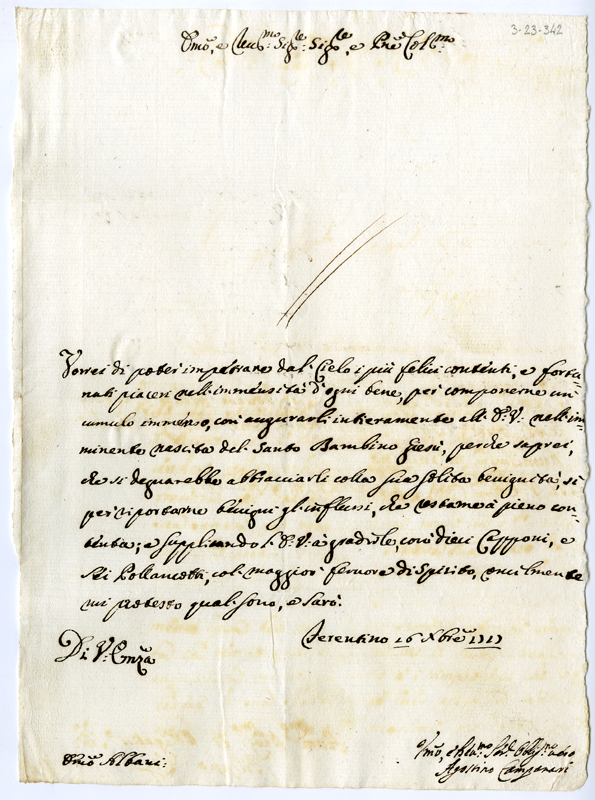 3-23-342
Emõ, e Reu.mo Sig.re Sig.re, e Prõe Col.mo
Vorrei di poter impetrare dal Cielo i più felici contenti, e fortu-
nati piaceri nell'immensità d'ogni bene, per componerne un
cumulo immenso, con augurarli intieramente all'E. V. nell'im-
minente nascita del Santo Bambino Giesù, perche saprei,
che si degnarebbe abbracciarli colla sua solita benignità, sì
per riportarne benigni gl'influssi, che restarne à pieno con-
tenta; e supplicando l'E. V. à gradirle, con dieci Capponi, e
sei Pollancotti, col maggior fervore di Spirito, umilmente
mi protesto qual sono, e sarò.
Ferentino 16 Xbre 1717
Di V. Emza
Emõ Albani.
Agostino Campanari